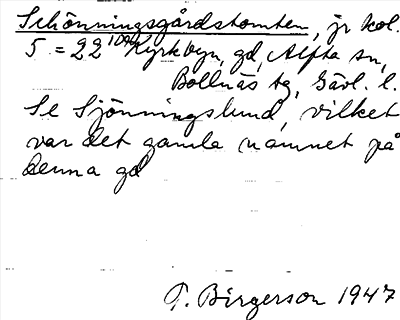 Schönningsgårdstomten, jr kol.
5 = 22 Kyrkbyn, gd, Alfta sn,
Bollnäs tg, Gävl. l.
Se Sjönningslund, vilket
var det gamla namnet på
denna gd
T. Birgerson 1947